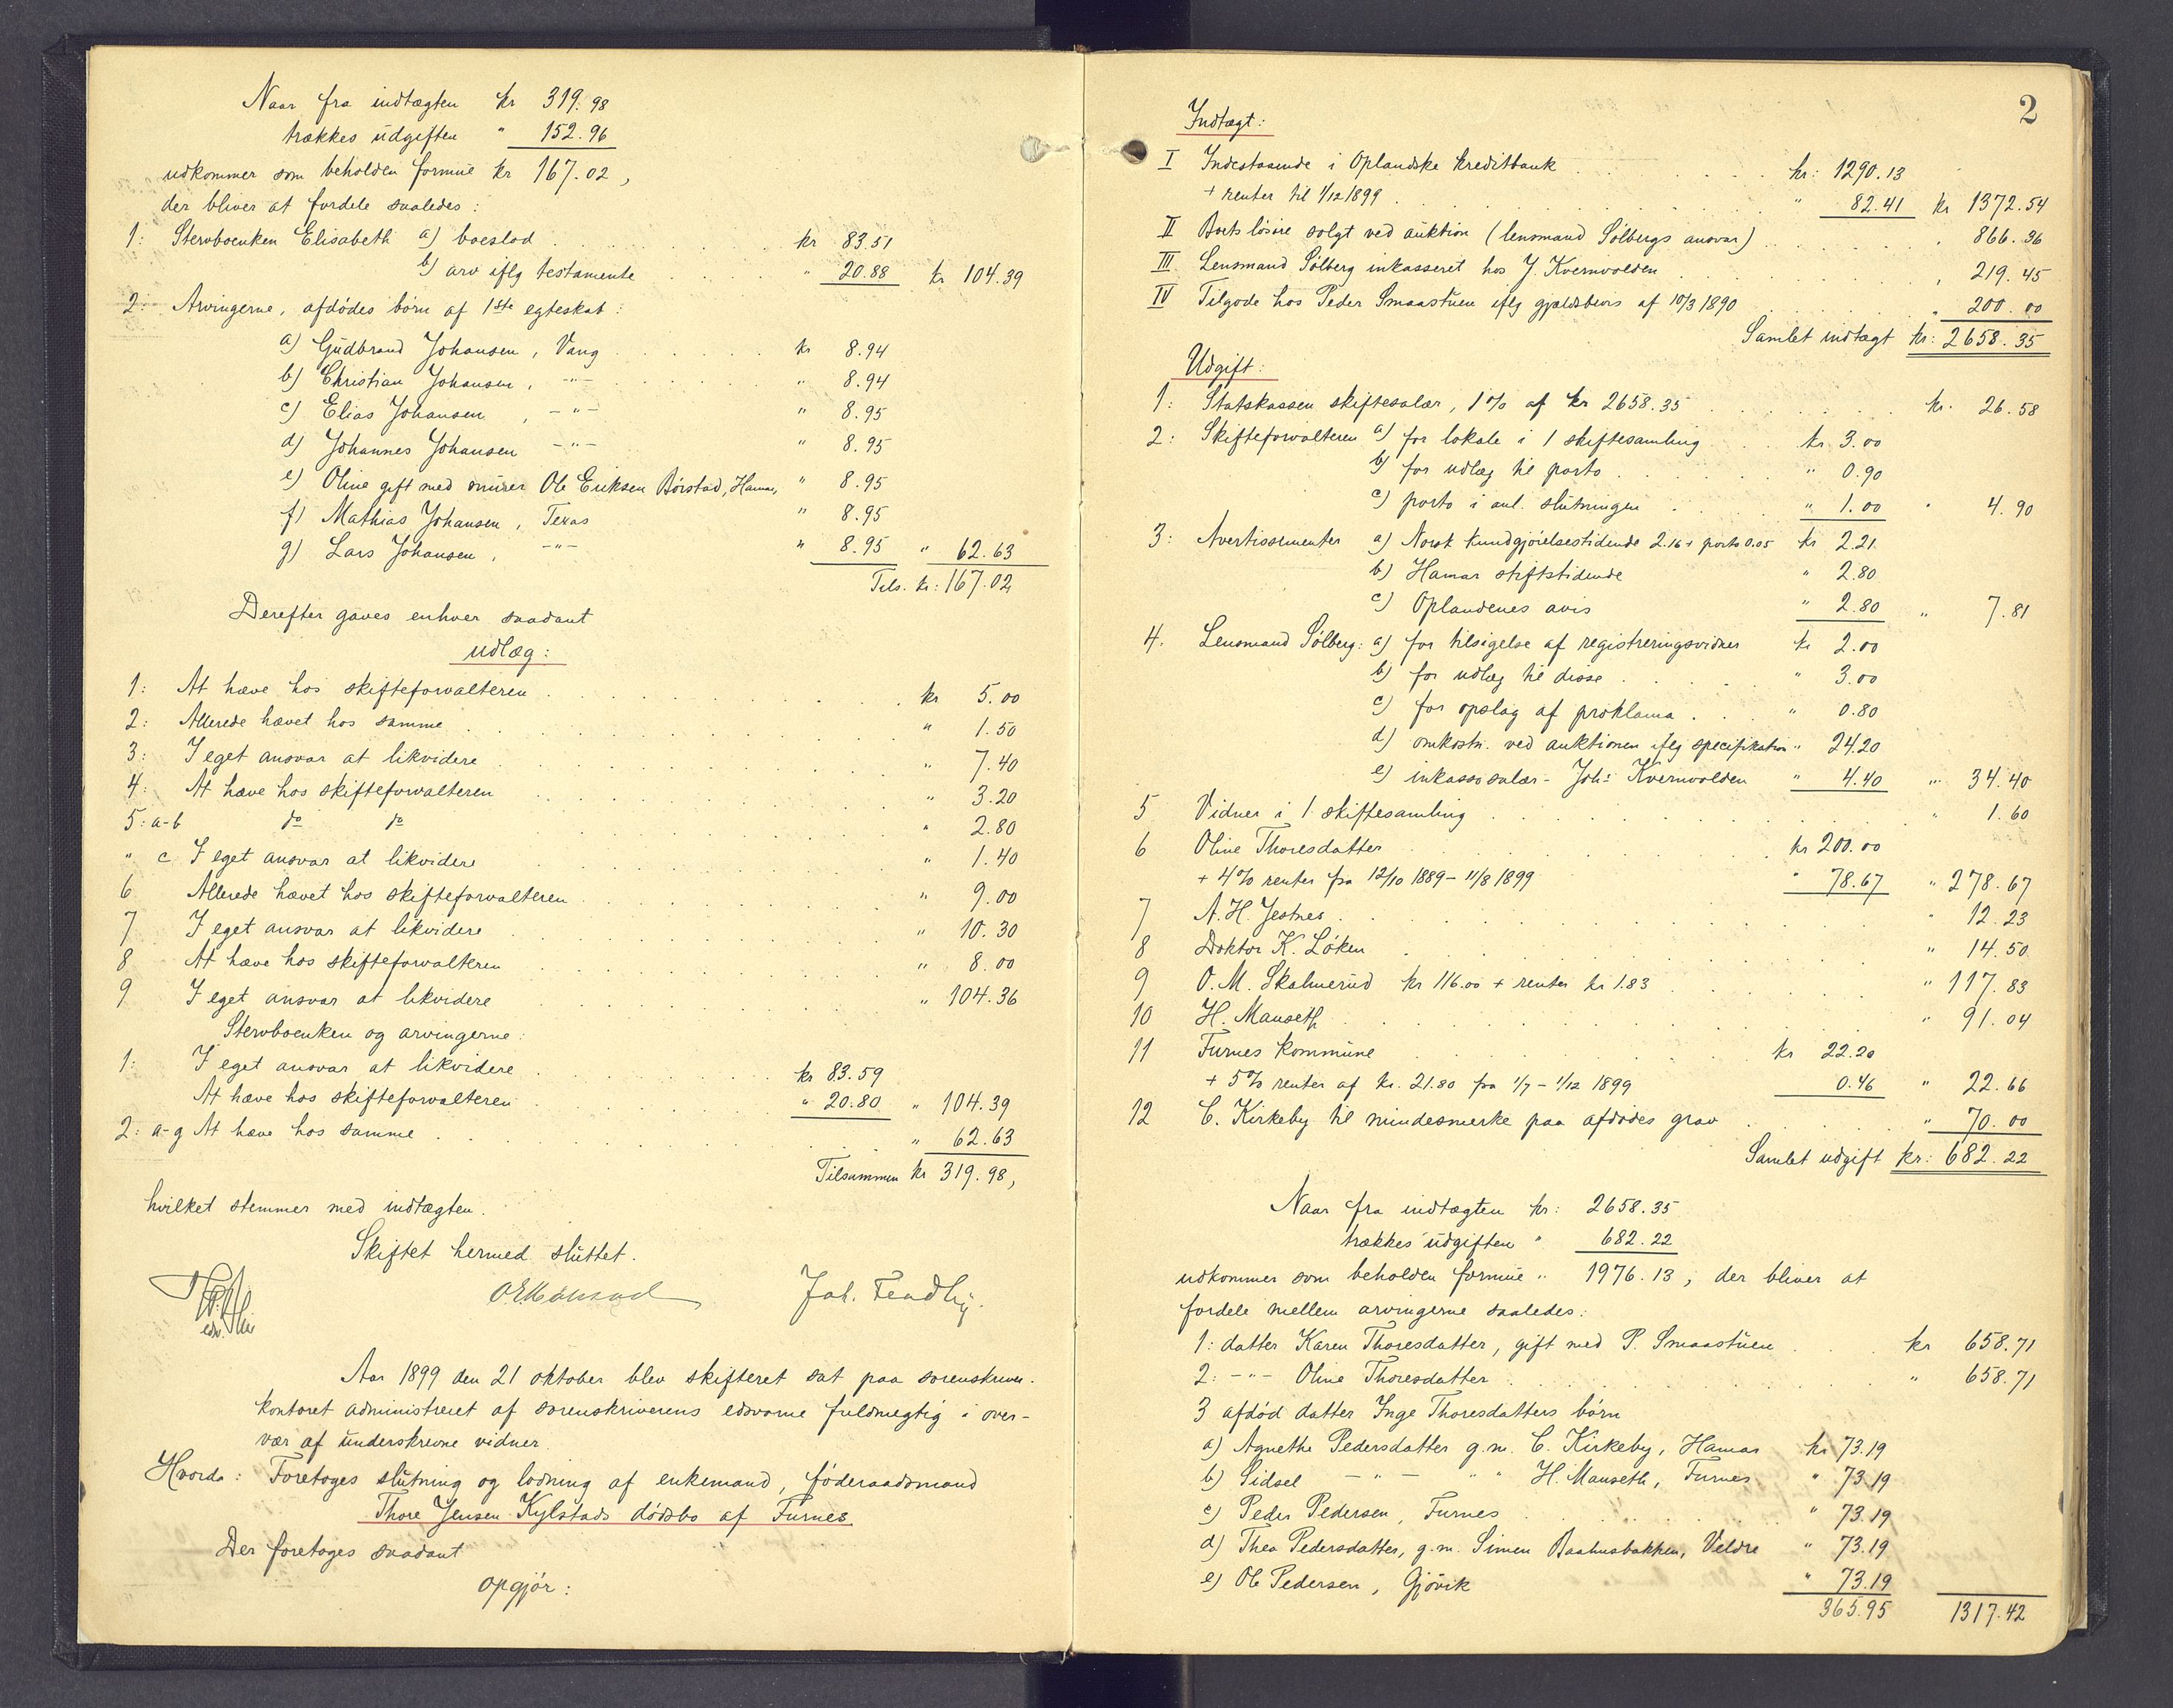 Naar fra indtægten kr 319.98
trækkes udgiften " 152.96
udkommer som beholden formue kr 167.02,
der bliver at fordele saaledes:
1: Stervboenken Elisabeth a) boeslod kr 83.51
b) arv iflg testamente " 20.88 kr 104.39
2: Arvingerne, afdødes børn af 1ste egteskab:
a) Gudbrand Johansen, Vang kr 8.94
b) Christian Johansen, -"- " 8.94
c) Elias Johansen, -"- " 8.95
d) Johannes Johansen -"- " 8.95
e) Oline gift med murer Ole Eriksen Børstad, Hamar, " 8.95
f) Mathias Johansen, Texas " 8.95
g) Lars Johansen, -"- " 8.95 " 62.63
Tils. kr: 167.02
Derefter gaves enhver saadant
udlæg:
1: At hæve hos skifteforvalteren kr 5.00
2: Allerede hævet hos samme " 1.50
3: I eget ansvar at likvidere " 7.40
4: At hæve hos skifteforvalteren " 3.20
5: a-b do do " 2.80
" c I eget ansvar at likvidere " 1.40
6 Allerede hævet hos skifteforvalteren " 9.00
7 I eget ansvar at likvidere " 10.30
8 At hæve hos skifteforvalteren " 8.00
9 I eget ansvar at likvidere " 104.36
Stervboenken og arvingerne:
1: I eget ansvar at likvidere kr 83.59
At hæve hos skifteforvalteren " 20.80 " 104.39
2: a-g At hæve hos samme " 62.63
Tilsammen kr 319.98,
hvilket stemmer med indtægten.
Skiftet hermed sluttet.
Joh. Fendby.
Aar 1899 den 21 oktober blev skifteret sat paa sorenskriver-
kontoret administreret af sorenskriverens edsvorne fuldmegtig i over-
vær af underskrevne vidner.
Hvorda: Foretoges slutning og lodning af enkemand, føderaadsmand
Thore Jensen Kylstads dødsbo af Furnes
Der foretoges saadant
opgjør:
2
Indtægt:
I Indestaaende i Oplandske Kreditbank kr: 1290.13
+ renter til 1/12 1899 " 82.41 kr 1372.54
II Boets løsøre solgt ved auktion (lensmand Sølbergs ansvar) " 866.36
III Lensmand Sølberg inkasseret hos J. Kvernvolden " 219.45
IV Tilgode hos Peder Smaastuen iflg gjældsbevis af 10/3 1890 " 200.00
Samlet indtægt kr: 2658.35
Udgift:
1: Statskassen skiftesalær, 1% af kr 2658.35 kr. 26.58
2: Skifteforvalteren a) for lokale i 1 skiftesamling kr. 3.00
b) for udlæg til porto " 0.90
c) porto i anl. slutningen " 1.00 " 4.90
3: Avertissementer a) Norsk kundgjørelsestidende 2.16 + porto 0.05 kr 2.21
b) Hamar stiftstidende " 2.80
c) Oplandenes avis " 2.80 " 7.81
4. Lensmand Sølberg: a) for tilsigelse af registreringsvidner kr 2.00
b) for udlæg til disse " 3.00
c) for opslag af proklama " 0.80
d) omkostn. ved auktionen iflg specifikation " 24.20
e) inkassosalær - Joh: Kvernvolden " 4.40 " 34.40
5 Vidner i 1 skiftesamling " 1.60
6 Oline Thoresdatter kr 200.00
+ 4% renter fra 12/10 1889 - 11/8 1899 " 78.67 " 278.67
7 A. H. Jestnes " 12.23
8 Doktor K. Løken " 14.50
9 O. M. Skalmerud kr 116.00 + renter kr 1.83 " 117.83
10 H. Mauseth " 91.04
11 Furnes kommune kr 22.20
+ 5% renter af kr. 21.80 fra 1/7 - 1/12 1899 0.46 " 22.66
12 C. Kirkeby til mindesmerke paa afdødes grav " 70.00
Samlet udgift kr: 682.22
Naar fra indtægten kr: 2658.35
trækkes udgiften " 682.22
udkommer som beholden formue " 1976.13, der bliver at
fordele mellem arvingerne saaledes:
1: datter Karen Thoresdatter, gift med P. Smaastuen kr 658.71
2: -"- Oline Thoresdatter " 658.71
3 afdød datter Inge Thoresdatters børn
a) Agnethe Pedersdatter g.m. C. Kirkeby, Hamar kr 73.19
b) Sidsel -"- " " H. Mauseth, Furnes " 73.19
c) Peder Pedersen, Furnes " 73.19
d) Thea Pedersdatter, g.m. Simen Baahusbakken, Veldre " 73.19
e) Ole Pedersen, Gjøvik " 73.19
365.95 1317.42